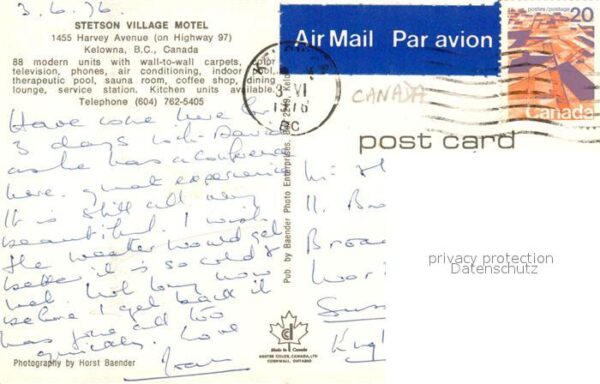 3.6.76.
STETSON VILLAGE MOTEL
1455 Harvey Avenue (on Highway 97)
Kelowna, B.C., Canada
88 modern units with wall-to-wall carpets, color
television, phones, air conditioning, indoor pool,
therapeutic pool, sauna room, coffee shop, dining
lounge, service station. Kitchen units available.
Telephone (604) 762-5405
Have come here for
3 days with David
as he has a conference
here. great experience
It is still all very
beautiful. I wish
the weather would get
better it is so cold &
wet. Not long now
before I get back it
has gone all too
quickly. Love
Joan
Photography by Horst Baender
Pub. by Baender Photo Enterprises, Box 2249, Kelowna
Air Mail Par avion
postes/postage
20
Canada
3 VI
1976
BC
CANADA
post card
11.
Sussex
privacy protection
Datenschutz
Made in Canada
CORNWALL, ONTARIO